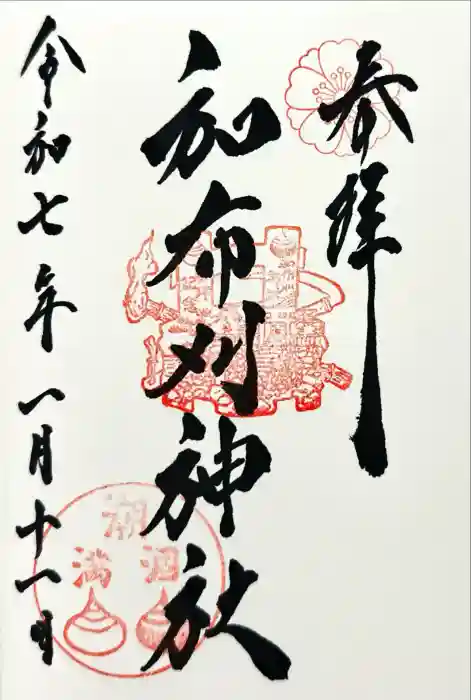 奉拝
和布刈神社
令和七年一月十一日
潮
満 涸